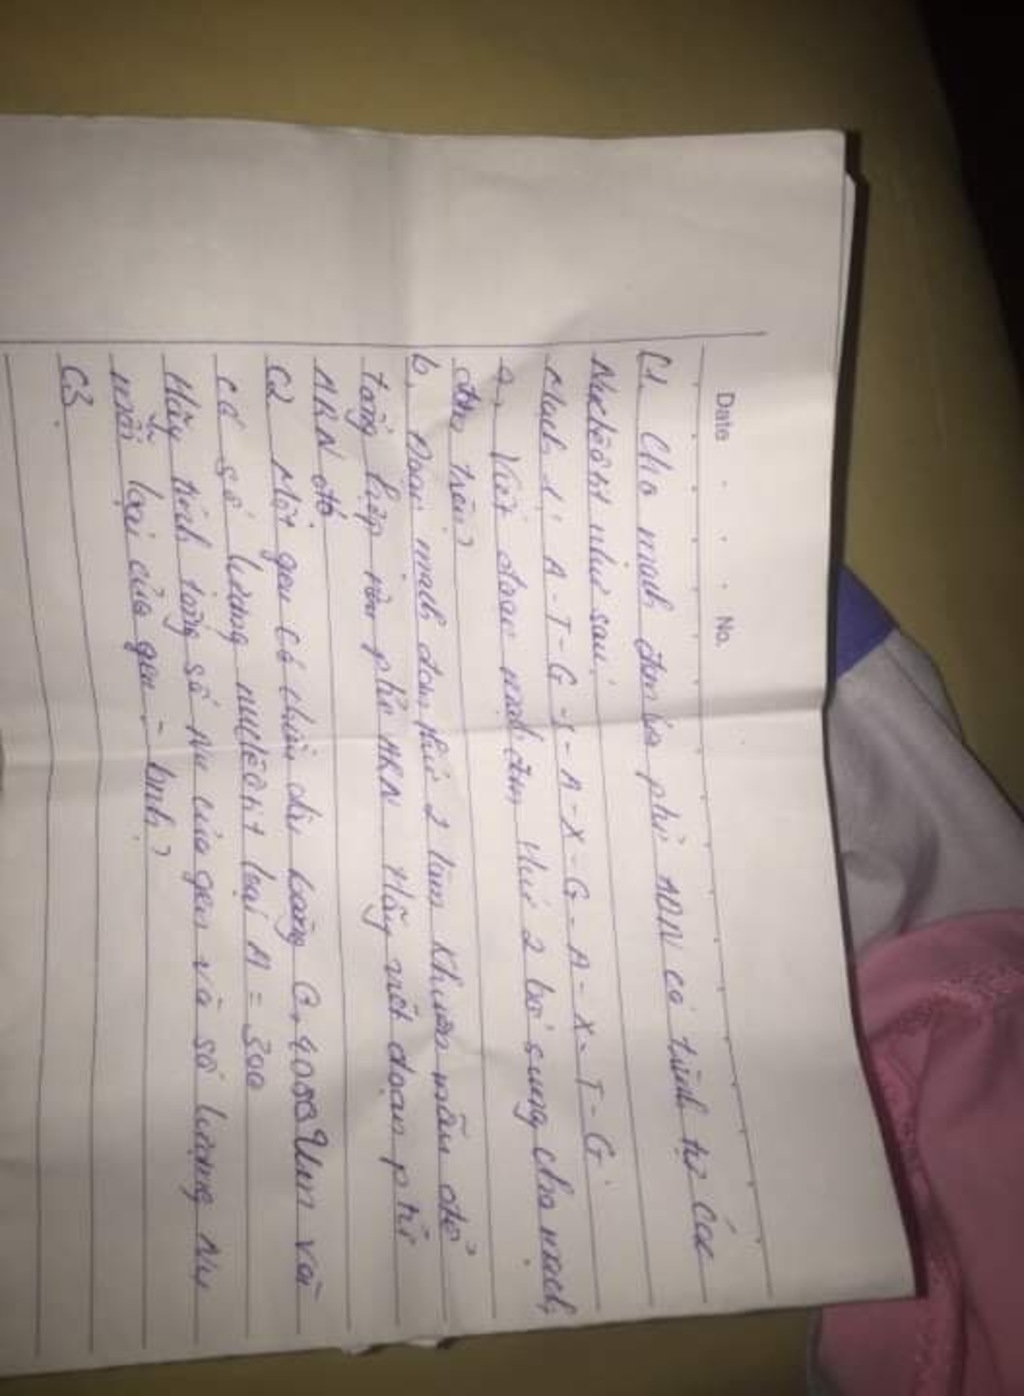 Date No.
C1. Cho mạch đơn của phử ADN có trình tự các
Nuclêôtit như sau:
Mạch 1: A-T-G-X-A-X-G-A-X-T-G
a, Viết đoạn mạch đơn thứ 2 bổ sung cho mạch
đơn trên?
b, Đoạn mạch đơn thứ 2 làm khuôn mẫu để
tổng hợp nên phử ARN. Hãy viết đoạn phử
ARN đó
C2 Một gen có chiều dài bằng 0,4080 Um và
có số lượng nuclêôtit loại A = 300
Hãy tính tổng số Nu của gen và số lượng Nu
mỗi loại của gen
C3